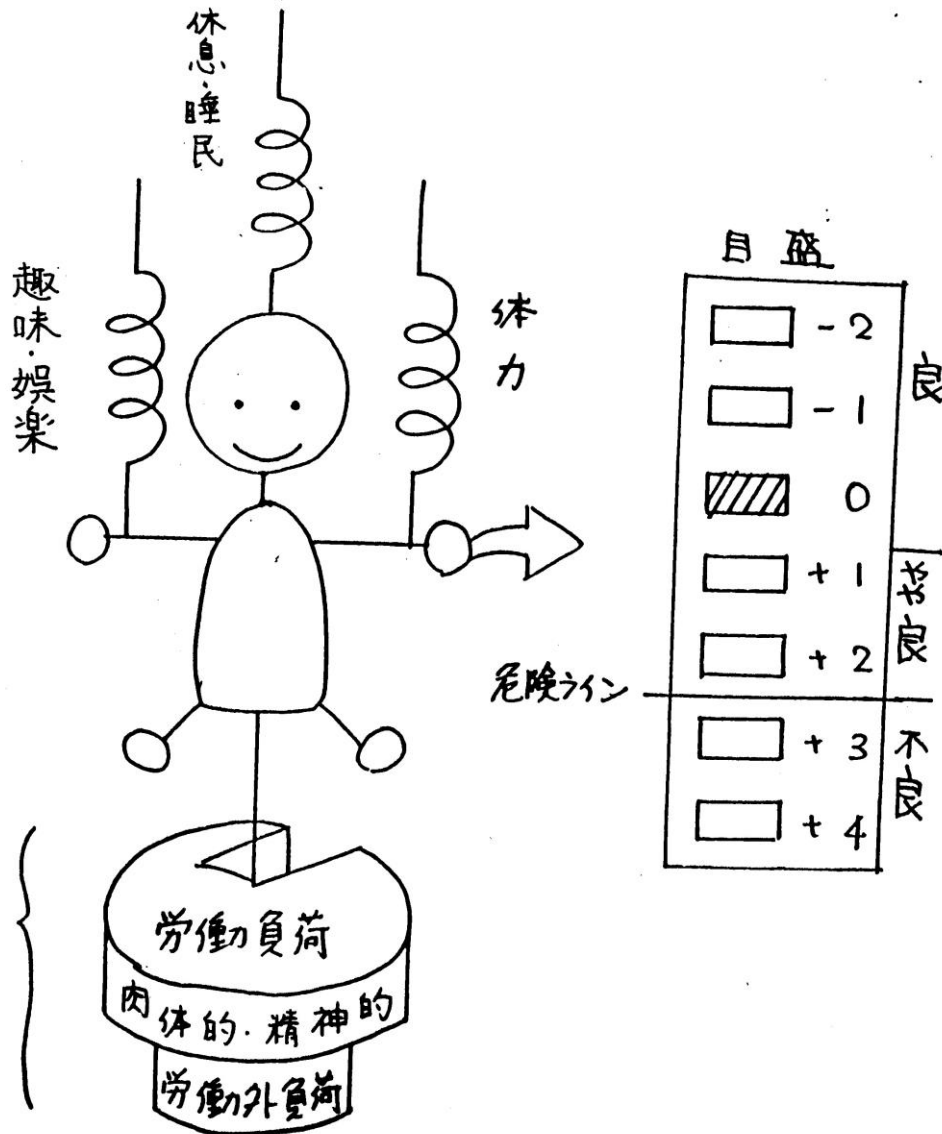 休息・睡民
趣味・娯楽
体力
目盛
-2
-1
0
+1
+2
+3
+4
良
やや良
不良
危険ライン
労働負荷
肉体的・精神的
労働外負荷